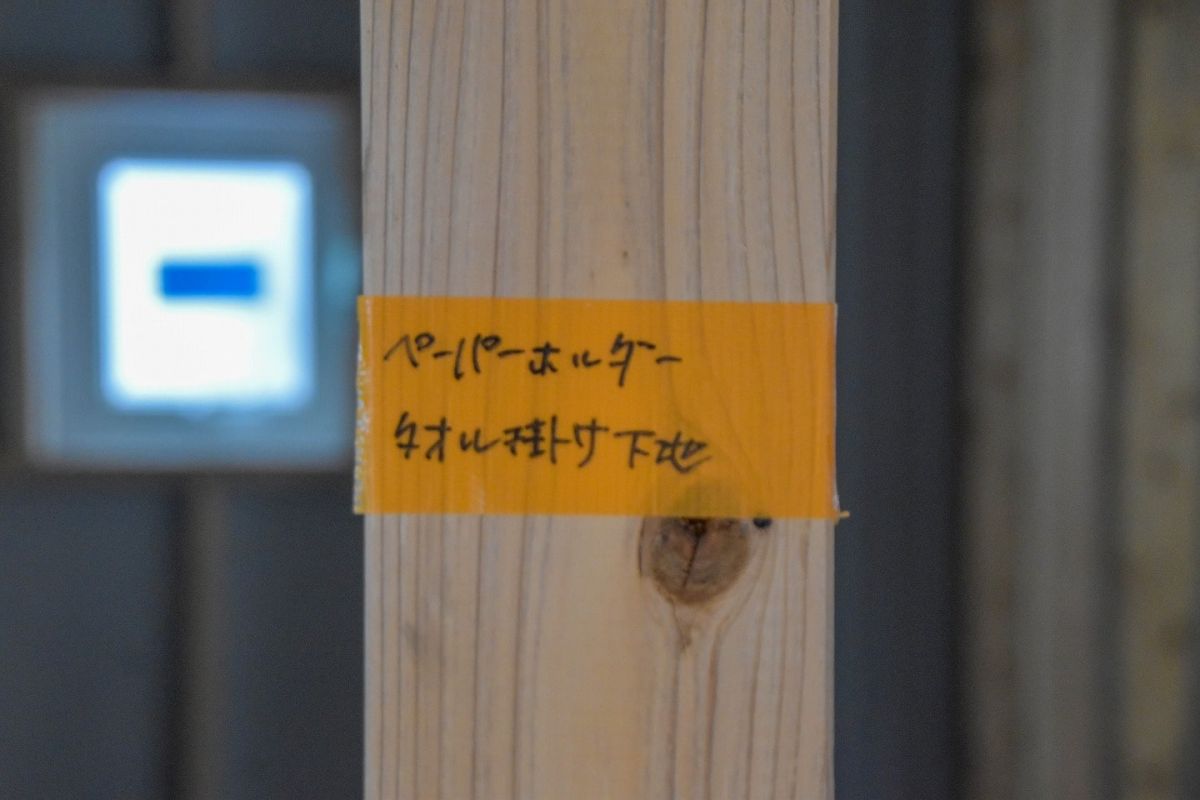 ペーパーホルダー
タオル掛け下地